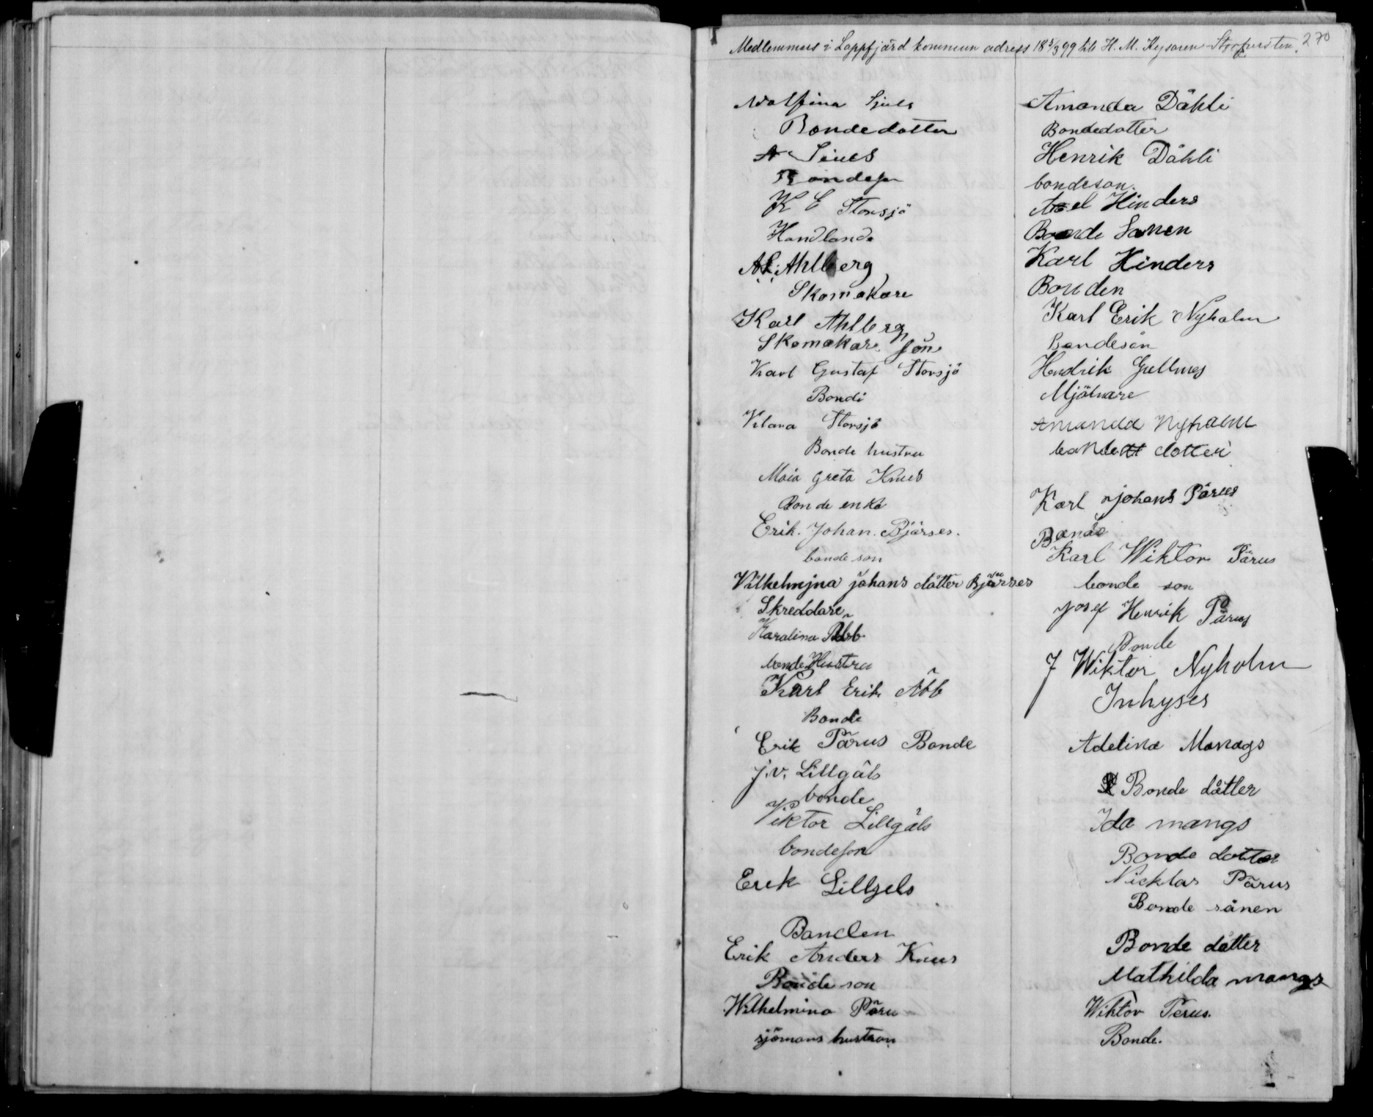 270
Medlemmars i Lappfjärd kommun adress 18 5/3 99 till H. M. Kejsaren Storfursten.
Adolfina Sjuls
Bondedotter
A Siuls
Bondeson
K E Storsjö
Handlande
A. Ahlberg
Skomakare
Karl Ahlberg
Skomakare son
Karl Gustaf Storsjö
Bonde
Klara Storsjö
Bonde hustru
Maia Greta Knus
Bonde enka
Erik Johan Bjärses.
bonde son
Vilhelmjna johans dåtter Bjärses
Skreddare
Karolina Åbb
bonde Hustru
Karl Erik Åbb
Bonde
Erik Pärus Bonde
J.V. Lillgäls
bonde
Viktor Lillgäls
bondeson
Erik Lillgels
Banden
Erik Anders Knus
Bonde son
Wilhelmina Päru
sjömans hustron
Amanda Dähli
Bondedotter
Henrik Dähli
bondeson.
Axel Hinders
Bonde Sonen
Karl Hinders
Bonden
Karl Erik Nyholm
Bondeson
Hendrik Gullmes
Mjölnare
Amanda Nyholm
bonde dotter
Karl johans Pärus
Bonde
Karl Wiktor Pärus
bonde son
Josef Henrik Pärus
Bonde
J Wiktor Nyholm
Inhyses
Adelina Manags
Bonde dåtter
Ida mangs
Bonde dotter
Nicklas Pärus
Bonde sånen
Bonde dotter
Mathilda mangs
Wiktor Perus.
Bonde.